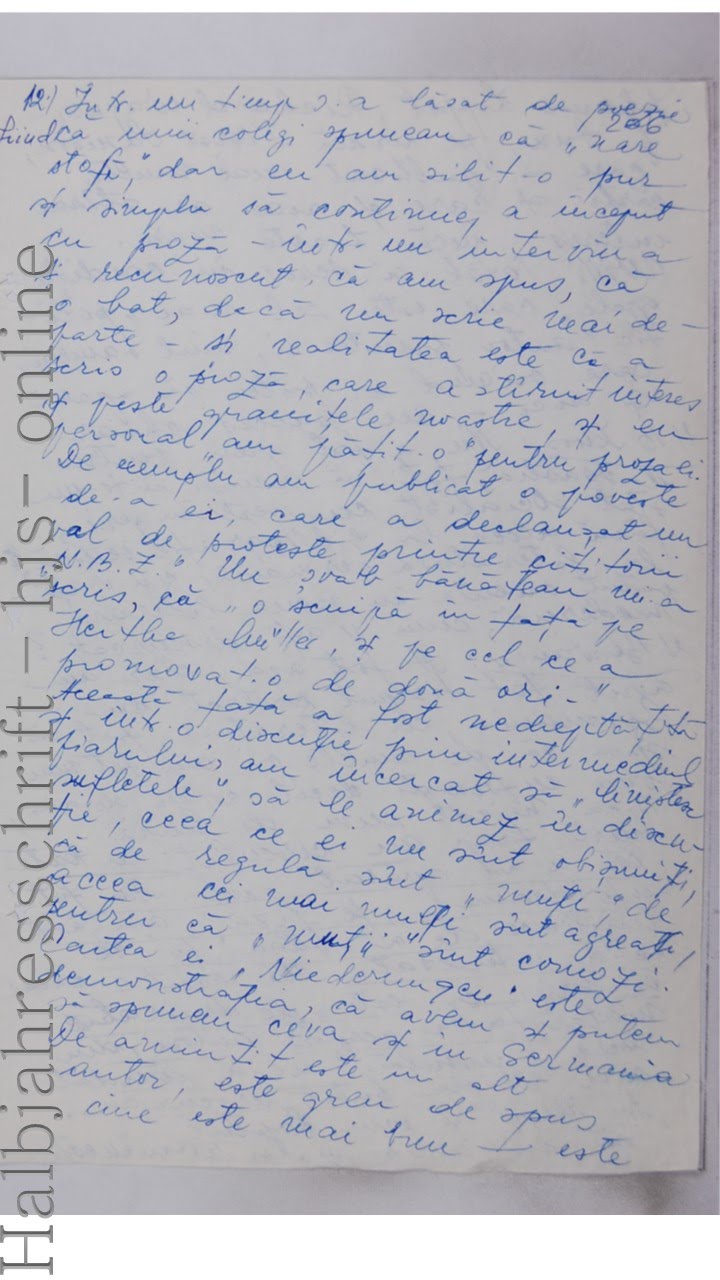 12.) Într-un timp s-a lăsat de poezie
266
fiindcă unii colegi spuneau că „nare
stofă," dar eu am silit-o pur
și simplu să continue, a început
cu proză – într-un interviu a
și recunoscut, că am spus, că
o bat, dacă nu scrie mai de-
parte – și realitatea este că a
scris o proză, care a stîrnit interes
și peste granițele noastre, și eu
personal am pățit-o „pentru proza ei.
De exemplu am publicat o poveste
de-a ei, care a declanșat un
val de proteste printre cititorii
„N.B.Z." Un șvab bănățean mi-a
scris, că „o scuipă în față pe
Hertha Müller, și pe cel ce a
promovat-o de două ori-"
Această fată a fost nedreptățită
și într-o discuție prin intermediul
ziarului, am încercat să „liniștesc
sufletele", să le animez în discu-
ție, ceea ce ei nu sînt obișnuiți,
că de regulă sînt „muți," de
aceea cei mai mulți sînt agreați,
pentru că „muții" sînt comozi.
Cartea ei „Niederungen" este
demonstrația, că avem și putem
să spunem ceva și in Germania
De amintit este un alt
autor, este greu de spus
cine este mai bun – este
Halbjahresschrift – hjs- online